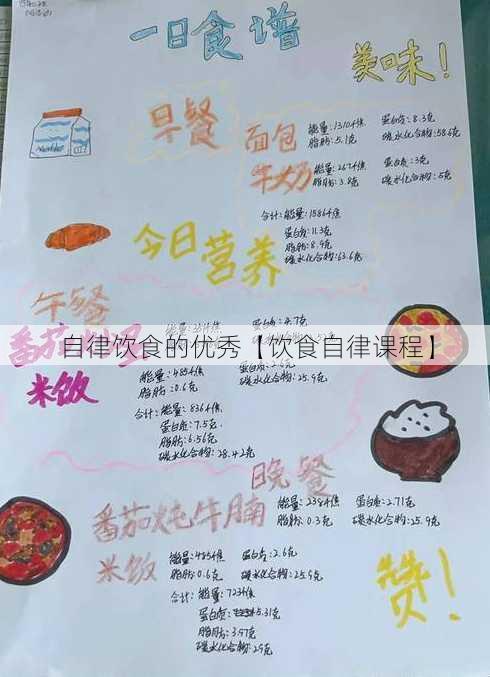 一日食谱
美味！
早餐
面包
能量:1310千焦
蛋白质:8.3克
脂肪:5.1克
碳水化合物:58.6克
牛奶
能量:267千焦
蛋白质:3克
脂肪:3.8克
碳水化合物:5克
合计:能量:1586千焦
蛋白质:11.3克
脂肪:8.9克
碳水化合物:63.6克
今日营养
午餐
蛋白质:4.7克
自律饮食的优秀【饮食自律课程】
米饭
能量:485千焦
脂肪:0.6克
碳水化合物:25.9克
合计:能量:836千焦
蛋白质:7.5克
脂肪:6.56克
碳水化合物:28.42克
晚餐
番茄炖牛腩
能量:238千焦
蛋白质:2.71克
脂肪:0.3克
碳水化合物:25.9克
米饭
能量:485千焦
蛋白质:2.6克
脂肪:0.6克
碳水化合物:25.9克
合计:能量:723千焦
蛋白质:5.31克
脂肪:3.97克
碳水化合物:29克
赞！